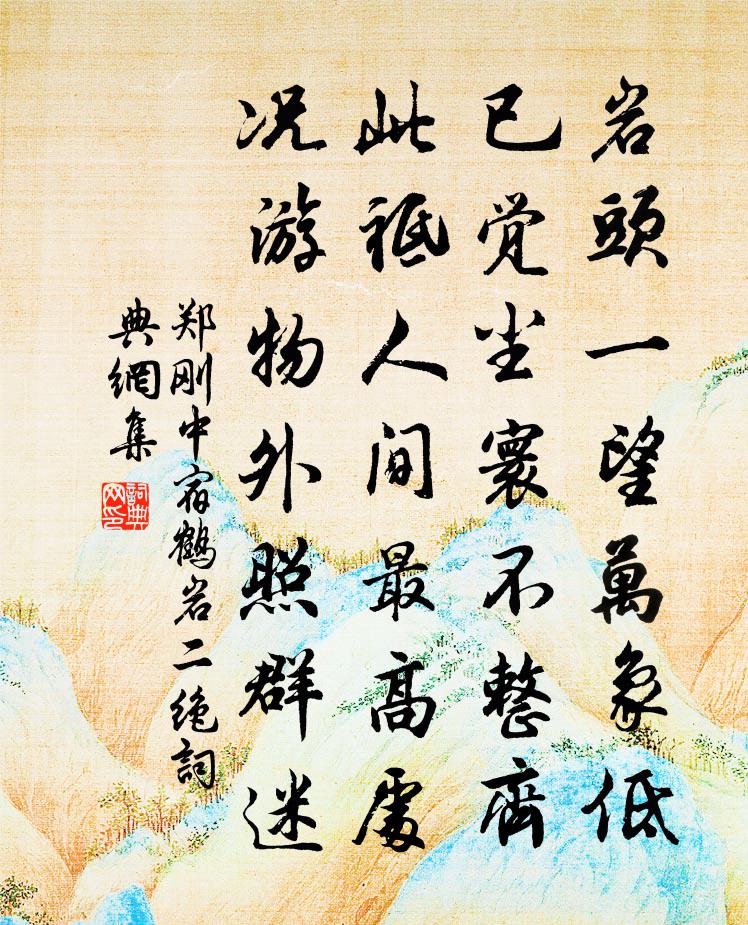 岩頭一望萬象低
已觉尘寰不整齊
此祗人间最高處
况游物外照群迷
郑刚中宿鶴岩二绝詞
典網集
詞典
网印